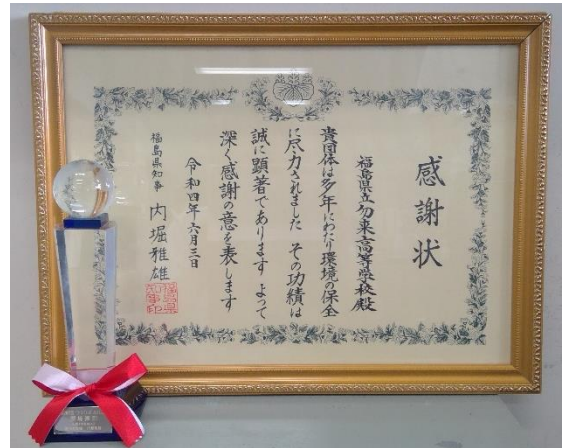 感謝状
福島県立勿来高等学校殿
貴団体は多年にわたり環境の保全
に尽力されました その功績は
誠に顕著であります よって
深く感謝の意を表します
令和四年六月三日
福島県知事 内堀雅雄